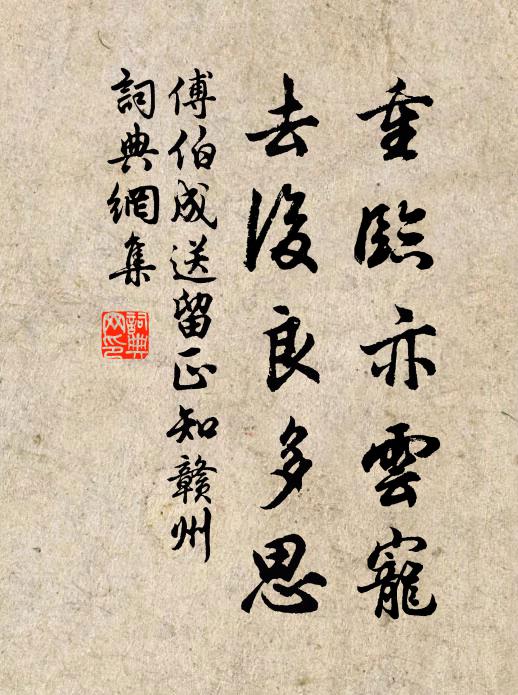 重臨亦雲寵
去後良多思
傅伯成送留正知贛州
詞典網集
詞典
网印